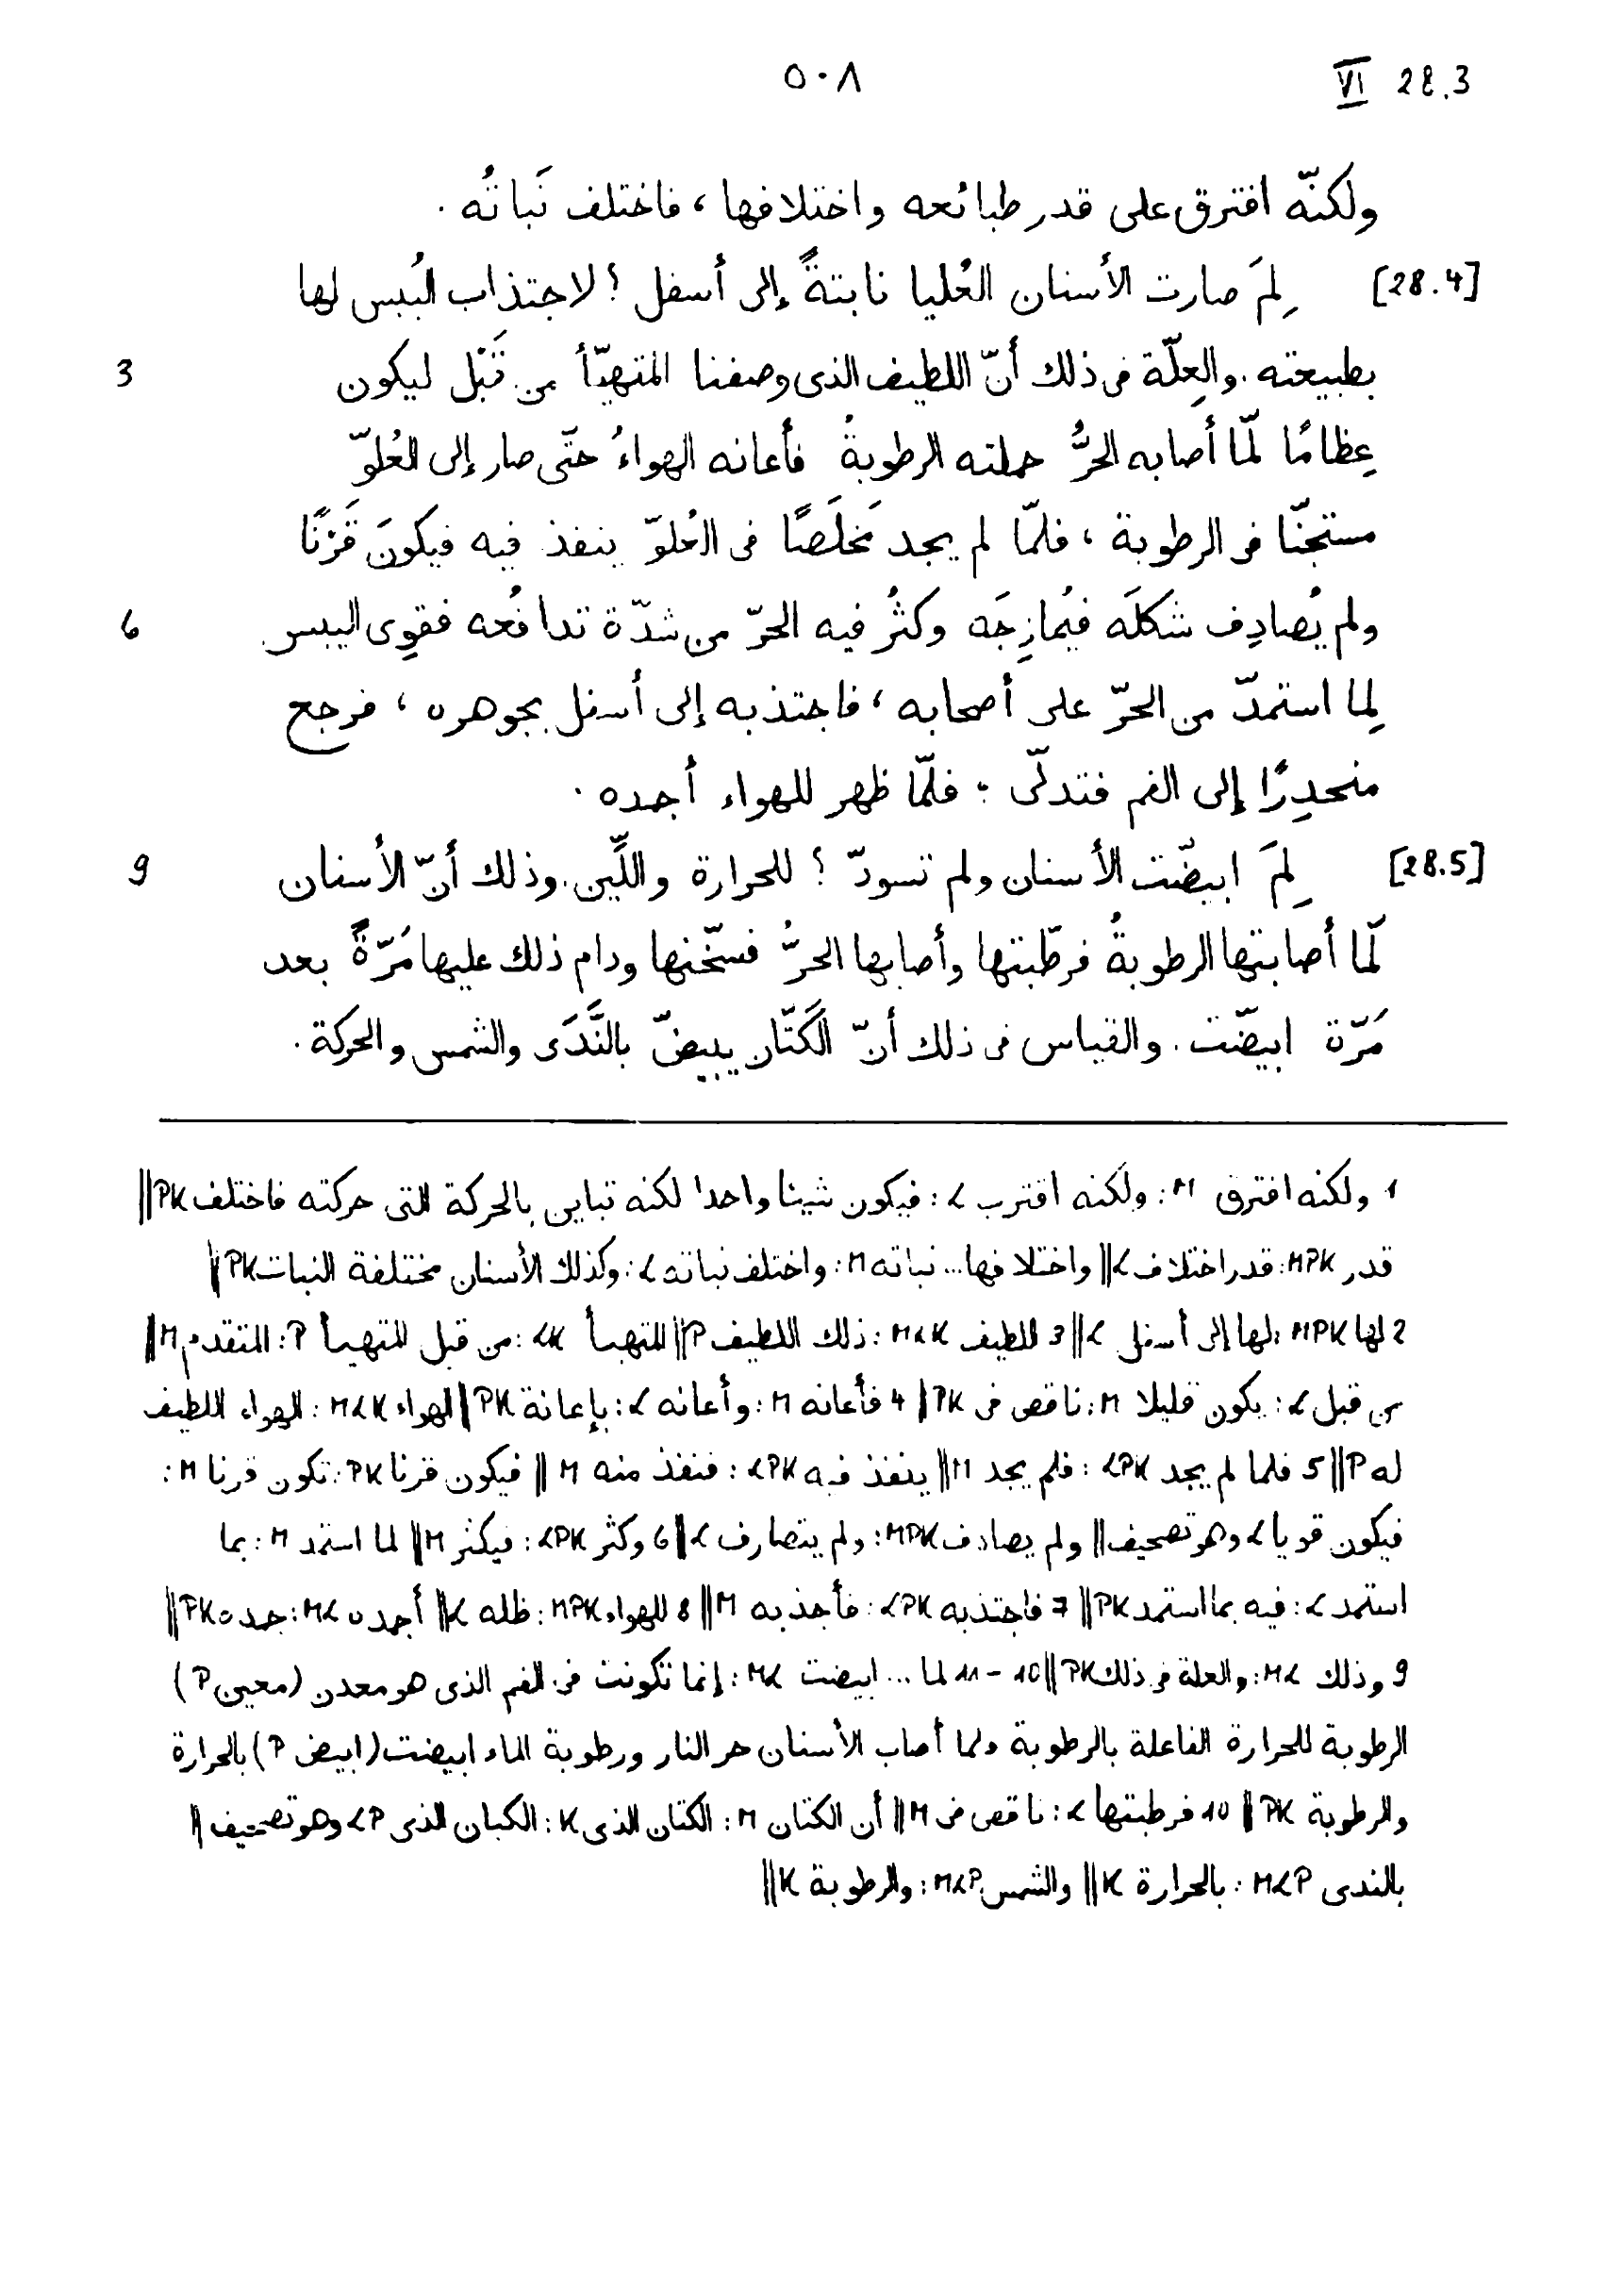 VI 28.3 ٥٠٨
ولكنّه افترق على قدر طبائعه واختلافها، فاختلف نَباتُه.
[28.4] لِمَ صارت الأسنان العُليا نابتةً إلى أسفل؟ لاجتذاب اليُبس لها
3 بطبيعته. والعِلّة فى ذلك أنّ اللطيف الذى وصفنا المتهيّأ من قَبْل ليكون
عِظامًا لمّا أصابه الحرُّ حملته الرطوبةُ فأعانه الهواءُ حتّى صار إلى العُلوّ
مستجنّا فى الرطوبة، فلمّا لم يجد مَخلَصًا فى العُلوّ ينفذ فيه فيكونَ قَرْنًا
6 ولم يُصادِف شكلَه فيُمازِجَه وكثُر فيه الحرّ من شدّة تدافُعه فقوِى اليبس
لِما استمدّ من الحرّ على أصحابه، فاجتذبه إلى أسفل بجوهره، فرجع
منحدِرًا إلى الفم فتدلّى؛ فلمّا ظهر للهواء أجمده.
9 [28.5] لِمَ ابيضّت الأسنان ولم تسودّ؟ للحرارة واللِّين. وذلك أنّ الأسنان
لمّا أصابتها الرطوبةُ فرطّبتها وأصابها الحرُّ فسخّنها ودام ذلك عليها مَرّةً بعد
مَرّة ابيضّت. والقياس فى ذلك أنّ الكَتّان يبيضّ بالنَّدَى والشمس والحركة.
1 ولكنه افترق M: ولكنه اقترب L: فيكون شيئا واحدا لكنه تباين بالحركة التى حركته فاختلف PK ||
قدر MPK: قدر اختلاف L || واختلافها... نباته M: واختلف نباته L: وكذلك الأسنان مختلفة النبات PK ||
2 لها MPK: لها إلى أسفل L || 3 اللطيف MLK: ذلك اللطيف P || المتهيأ LK: من قبل المتهيأ P: المتقدم M ||
من قبل L: يكون قليلا M: ناقص فى PK || 4 فأعانه M: وأعانه L: بإعانة PK || الهواء MLK: الهواء اللطيف
له P || 5 فلما لم يجد LPK: فلم يجد M || ينفذ فيه LPK: فنفذ منه M || فيكون قرنا PK: تكون قرنا M:
فيكون قويا L وهو تصحيف || ولم يصادف MPK: ولم يتصارف L || 6 وكثر LPK: فيكثر M || لما استمد M: بما
استمد L: فيه بما استمد PK || 7 فاجتذبه LPK: فأجذبه M || 8 للهواء MPK: ظله L || أجمده ML: جمده PK ||
9 وذلك ML: والعلة فى ذلك PK || 10-11 لما ... ابيضت ML: إنما تكونت فى الفم الذى هو معدن (معين P)
الرطوبة للحرارة الفاعلة بالرطوبة ولما أصاب الأسنان حر النار ورطوبة الماء ابيضت (ابيض P) بالحرارة
والرطوبة PK || 10 فرطبتها L: ناقص فى M || أن الكتان M: الكتان الذى K: الكبان الذى LP وهو تصحيف ||
بالندى MLP: بالحرارة K || والشمس MLP: والرطوبة K ||